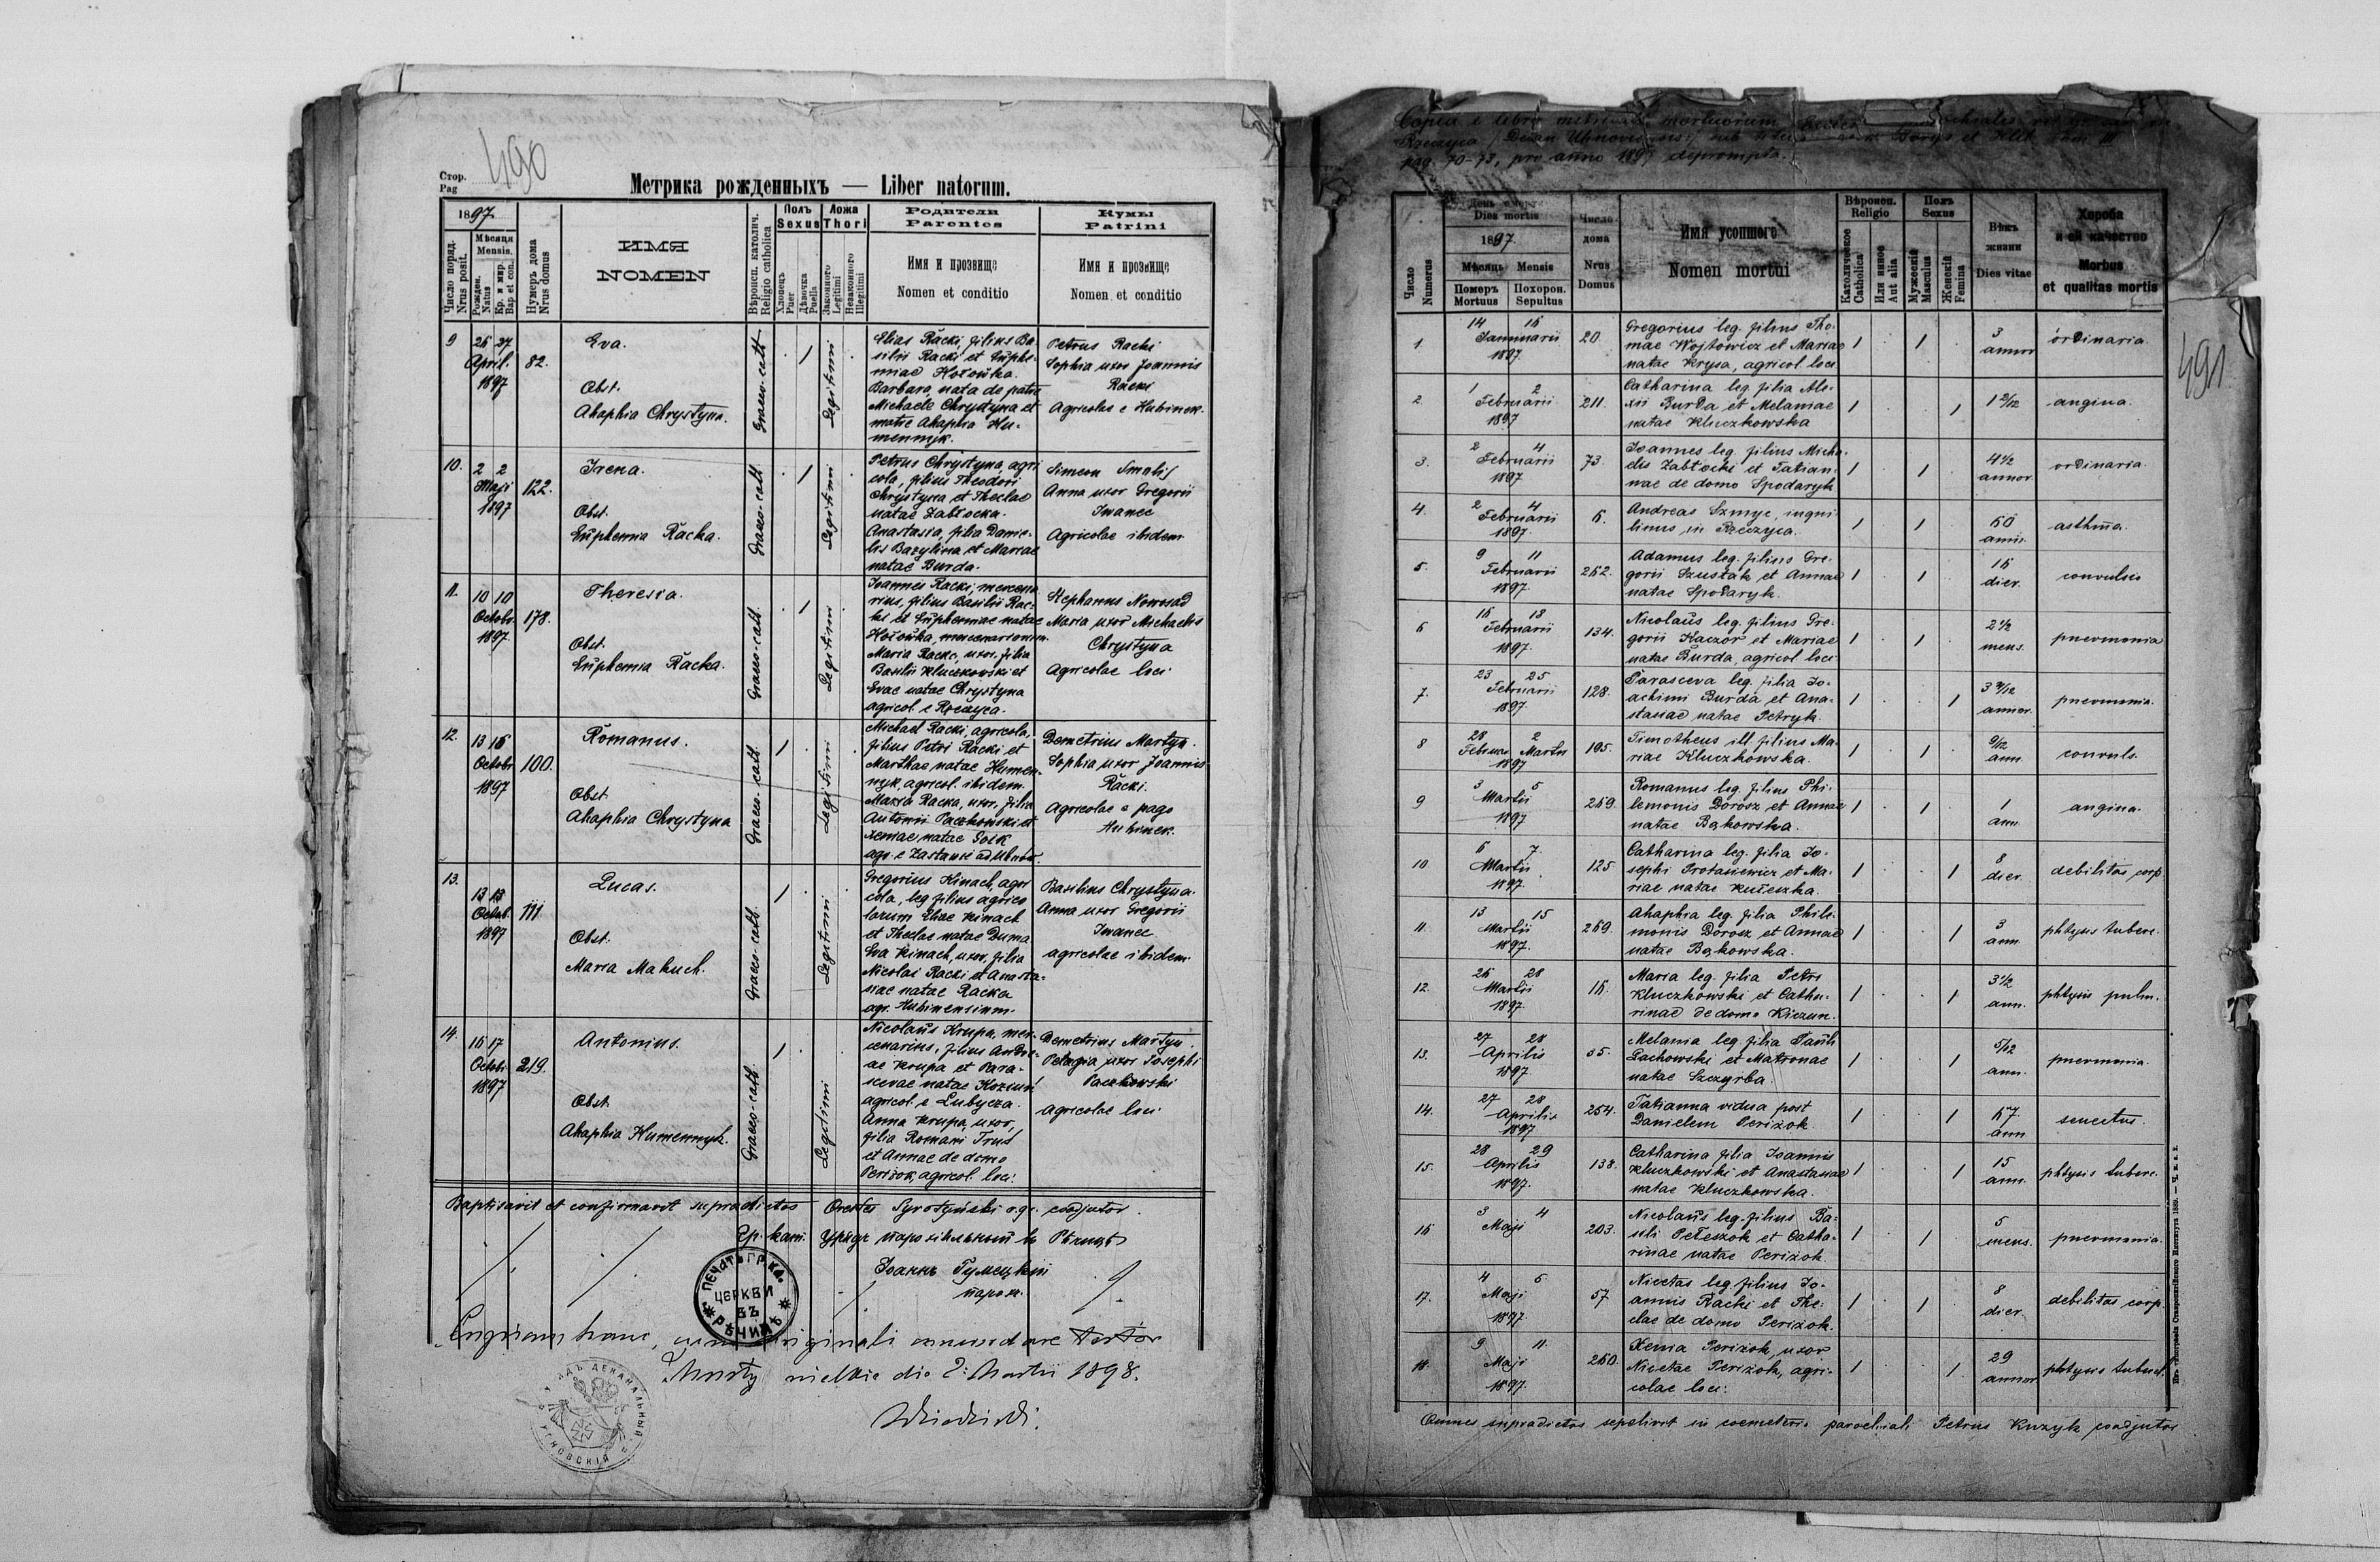 490
Стор.
Pag
Метрика рожденныхъ — Liber natorum.
1897
Мѣсяця
Mensis.
Число поряд.
Nrus posit.
Рожден.
Natus
Кр. и мир.
Bap et con.
Нумеръ дома
Nrus domus
ИМЯ
NOMEN
Вѣроисп. католич.
Religio catholica
Полъ
Sexus
Хлопецъ
Puer
Дѣвочка
Puella
Ложа
Thori
Законного
Legitimi
Незаконного
Illegitimi
Родители
Parentes
Имя и прозвище
Nomen et conditio
Кумы
Patrini
Имя и прозвище
Nomen et conditio
9
26 27
April.
1897
82.
Eva.
Obst.
Ahaphia Chrystyna.
Graeco-cath
1
Legitimi
Elias Racki, filius Ba-
silii Racki et Euphe-
miae Hołowka.
Barbara, nata de patre
Michaele Chrystyna et
matre Ahaphia Hu-
mennyk.
Petrus Racki
Sophia uxor Joannis
Racki
Agricolae e Hubinek.
10.
2 2
Maji
1897
122.
Irena.
Obst.
Euphemia Racka.
Graeco-cath
1
Legitimi
Petrus Chrystyna, agri
cola, filius Theodori
Chrystyna et Theclae
natae Zabłocka.
Anastasia, filia Danie-
lis Bazylina et Mariae
natae Burda.
Simeon
Anna uxor Gregorii
Iwanec
Agricolae ibidem
11.
10 10
Octobr.
1897.
178.
Theresia.
Obst.
Euphemia Racka.
Graeco-cath.
1
Legitimi
Joannes Racki, mercena
rius, filius Basilii Rac-
ki et Euphemiae natae
Hołowka, mercenariorum.
Maria Racka, uxor, filia
Basilii Kluczkowski et
Evae natae Chrystyna
agricol. e Rzeczyca.
Stephanus Nowosad
Maria uxor Michaelis
Chrystyna
Agricolae loci
12.
13 16
Octobr
1897
100.
Romanus.
Obst.
Ahaphia Chrystyna
Graeco-cath.
1
Legitimi
Michael Racki, agricola,
filius Petri Racki et
Marthae natae Humen-
nyk, agricol. ibidem.
Maria Racka, uxor, filia
Antonii Paczkowski et
Xeniae, natae
agr. e Zastawie ad Uhnów.
Demetrius Martyn.
Sophia uxor Joannis
Racki.
Agricolae e pago
Hubinek.
13.
13 13
Octob.
1897
111
Lucas.
Obst.
Maria Makuch.
Graeco-cath.
1
Legitimi
Gregorius Kinach, agri
cola, leg filius agrico
larum Eliae Kinach
et Theclae natae Duma
Eva Kinach, uxor, filia
Nicolai Racki et Anasta-
siae natae Racka
agr. Hubinensium.
Basilius Chrystyna.
Anna uxor Gregorii
Iwanec
agricolae ibidem.
14.
16 17
Octobr.
1897
219.
Antonius.
Obst.
Ahaphia Humennyk.
Graeco-cath
1
Legitimi
Nicolaus Krupa, mer-
cenarius, filius Andre-
ae Krupa et Para-
scevae natae
agricol. e Lubycza.
Anna Krupa, uxor,
filia Romani Truś
et Annae de domo
Perizok, agricol. loci.
Demetrius Martyn.
Pelagia, uxor Josephi
Paczkowski
agricolae loci
Baptisavit et confirmavit supradictos Orestes coadjutor.
Гр. кат. Урядъ парохіяльный въ Рѣчицѣ
Іоаннъ Гумецкій
парох.
ПЕЧАТЬ ГР. КА.
ЦЕРКВИ
ВЪ
РѢЧИЦѢ
hanc, cum originali concordare testor
Mosty wielkie die 2. Martii 1898.
УРЯДЪ ДЕКАНАЛЬНЫЙ
УГНОВСКІЙ
Copia e libro metricali mortuorum
Rzeczyca / Decan Uhnoviensis / sub titulo Borys et Hlib Tom III
pag. 70-73, pro anno 1897 deprompta.
491
Число
Numerus
День смерти
Dies mortis
1897
Мѣсяць Mensis
Померъ
Mortuus
Похорон.
Sepultus
Число
дома
Nrus
Domus
Имя усопшого
Nomen mortui
Вѣроисп.
Religio
Католическое
Catholica
Или инное
Aut alia
Полъ
Sexus
Мужескій
Masculus
Женскій
Femina
Вѣкъ
жизни
Dies vitae
Хороба
и ей качество
Morbus
et qualitas mortis
1
14 16
Januarii
1897.
20
Gregorius leg. filius Tho-
mae Wojtowicz et Mariae
natae Krysa, agricol. loci
1 1
3
annor
ordinaria
2.
1 2
Februarii
1897
211.
Catharina leg. filia Ale-
xii Burda et Melaniae
natae Kluczkowska
1 1
1 2/12
angina.
3.
2 4
Februarii
1897
73.
Joannes leg. filius Micha-
elis Zabłocki et Tatian-
nae de domo Spodaryk
1 1
4 1/2
annor.
ordinaria.
4.
2 4
Februarii
1897.
6.
Andreas Szmyc, inqui
linus in Rzeczyca.
1 1
60
ann.
asthma.
5.
9 11
Februarii
1897.
262.
Adamus leg. filius Gre-
gorii Szustak et Annae
natae Spodaryk.
1 1
16
dier.
convulsio
6
16 18
Februarii
1897.
134.
Nicolaus leg. filius Gre-
gorii Kaczor et Mariae
natae Burda, agricol loci
1 1
2 1/2
mens.
pneumonia
7.
23 25
Februarii
1897.
128.
Parasceva leg. filia Jo-
achimi Burda et Ana-
stasiae natae Petryk.
1 1
annor.
pneumonia.
8
28 2
Februar Martii
1897
195.
Timotheus ill. filius Ma-
riae Kluczkowska.
1 1
9/12
ann
convuls.
9
3 5
Martii
1897
269.
Romanus leg. filius Phi-
lemonis Dorosz et Annae
natae Bąkowska.
1 1
1
ann
angina.
10
6 7.
Martii
1897.
125
Catharina leg. filia Jo-
sephi Protasiewicz et Ma-
riae natae Kuleszka.
1 1
8
dier
debilitas corp.
11.
13 15
Martii
1897.
269.
Ahaphia leg. filia Phile-
monis Dorosz et Annae
natae Bąkowska.
1 1
3
ann
phtysis tuberc.
12.
26 28
Martii
1897.
16.
Maria leg. filia Petri
Kluczkowski et Catha-
rinae de domo Kiczun.
1 1
3 1/2
ann.
phtysis pulm.
13.
27 28
Aprilis
1897
55.
Melania leg filia Pauli
Lachowski et Matronae
natae Szczyrba.
1 1
5/12
ann.
pneumonia.
14.
27 28
Aprilis
1897
254.
Tatianna vidua post
Danielem Perizok
1 1
67
ann
senectus.
15.
28 29
Aprilis
1897.
138.
Catharina filia Joannis
Kluczkowski et Anastasiae
natae Kluczkowska.
1 1
15
ann.
phtysis tuberc.
16
3 4
Maji
203.
Nicolaus leg. filius Ba-
silii Peleszok et Catha-
rinae natae Perizok
1 1
5
mens.
pneumonia.
17.
4 6
Maji
1897.
57
Nicetas leg filius Jo-
annis Racki et The-
clae de domo Perizok.
1 1
8
dier.
debilitas corp.
18
9 11.
Maji
1897.
260.
Xenia Perizok, uxor
Nicetae Perizok, agri-
colae loci.
1 1
29
annor
phtysis tuberc.
Omnes supradictos sepelivit in coemeterio parochiali Petrus Kuzyk coadjutor
Изъ типографіи Ставропигійского Института 1889.